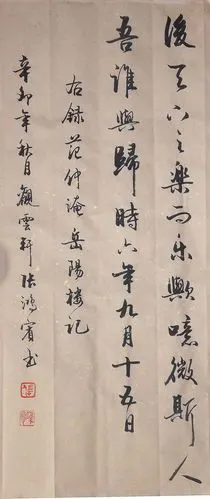 後天下之樂而樂歟噫微斯人
吾誰與歸時六年九月十五日
右録范仲淹岳陽樓記
辛卯年秋月觀雲軒張鴻賓書